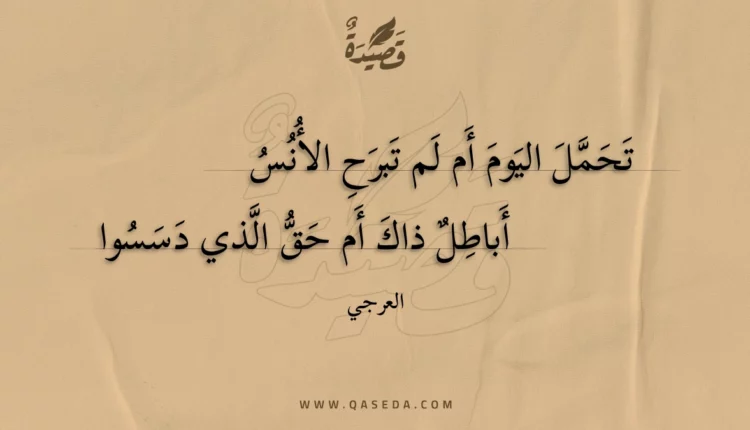 قَصِيدَةٌ
تَحَمَّلَ اليَومَ أَم لَم تَبرَحِ الأُنُسُ
أَباطِلٌ ذاكَ أَم حَقُّ الَّذي دَسَسُوا
العرجي
WWW.QASEDA.COM